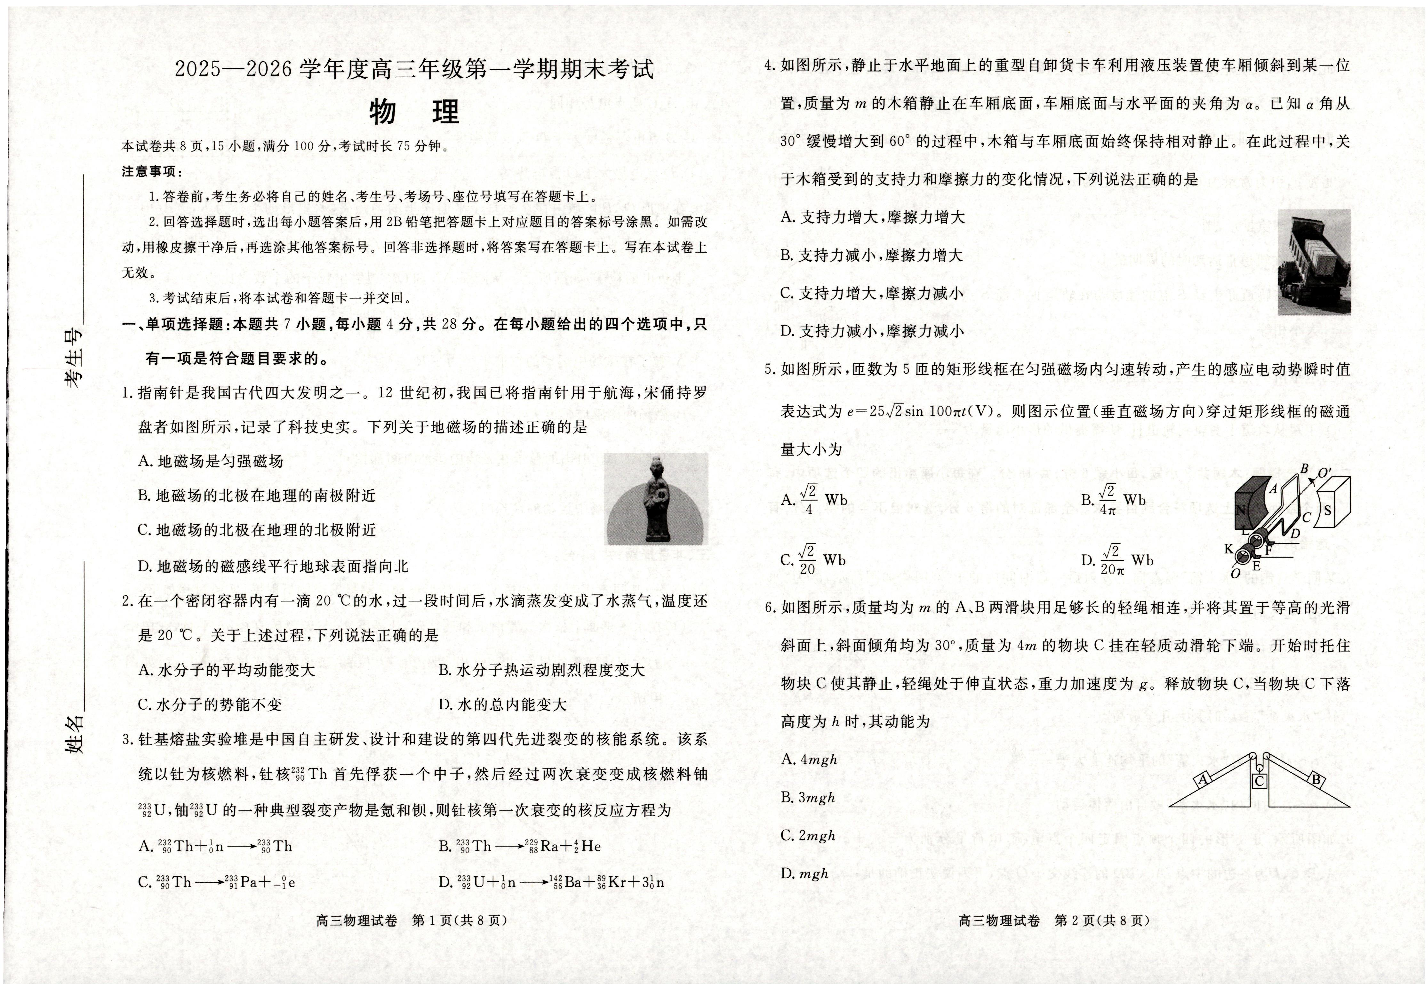 考生号
姓名
2025—2026 学年度高三年级第一学期期末考试
物 理
本试卷共 8 页,15 小题,满分 100 分,考试时长 75 分钟。
注意事项:
1. 答卷前,考生务必将自己的姓名、考生号、考场号、座位号填写在答题卡上。
2. 回答选择题时,选出每小题答案后,用 2B 铅笔把答题卡上对应题目的答案标号涂黑。如需改
动,用橡皮擦干净后,再选涂其他答案标号。回答非选择题时,将答案写在答题卡上。写在本试卷上
无效。
3. 考试结束后,将本试卷和答题卡一并交回。
一、单项选择题:本题共 7 小题,每小题 4 分,共 28 分。在每小题给出的四个选项中,只
有一项是符合题目要求的。
1. 指南针是我国古代四大发明之一。12 世纪初,我国已将指南针用于航海,宋俑持罗
盘者如图所示,记录了科技史实。下列关于地磁场的描述正确的是
A. 地磁场是匀强磁场
B. 地磁场的北极在地理的南极附近
C. 地磁场的北极在地理的北极附近
D. 地磁场的磁感线平行地球表面指向北
2. 在一个密闭容器内有一滴 20 ℃的水,过一段时间后,水滴蒸发变成了水蒸气,温度还
是 20 ℃。关于上述过程,下列说法正确的是
A. 水分子的平均动能变大 B. 水分子热运动剧烈程度变大
C. 水分子的势能不变 D. 水的总内能变大
3. 钍基熔盐实验堆是中国自主研发、设计和建设的第四代先进裂变的核能系统。该系
统以钍为核燃料,钍核$^{232}_{90}$Th 首先俘获一个中子,然后经过两次衰变变成核燃料铀
$^{233}_{92}$U,铀$^{233}_{92}$U 的一种典型裂变产物是氪和钡,则钍核第一次衰变的核反应方程为
A. $^{232}_{90}$Th+$^{1}_{0}$n⟶$^{233}_{90}$Th B. $^{233}_{90}$Th⟶$^{229}_{88}$Ra+$^{4}_{2}$He
C. $^{233}_{90}$Th⟶$^{233}_{91}$Pa+$^{0}_{-1}$e D. $^{233}_{92}$U+$^{1}_{0}$n⟶$^{142}_{56}$Ba+$^{89}_{36}$Kr+3$^{1}_{0}$n
高三物理试卷 第 1 页(共 8 页)
4. 如图所示,静止于水平地面上的重型自卸货卡车利用液压装置使车厢倾斜到某一位
置,质量为 m 的木箱静止在车厢底面,车厢底面与水平面的夹角为 α。已知 α 角从
30° 缓慢增大到 60° 的过程中,木箱与车厢底面始终保持相对静止。在此过程中,关
于木箱受到的支持力和摩擦力的变化情况,下列说法正确的是
A. 支持力增大,摩擦力增大
B. 支持力减小,摩擦力增大
C. 支持力增大,摩擦力减小
D. 支持力减小,摩擦力减小
5. 如图所示,匝数为 5 匝的矩形线框在匀强磁场内匀速转动,产生的感应电动势瞬时值
表达式为 e=25√2sin 100πt(V)。则图示位置(垂直磁场方向)穿过矩形线框的磁通
量大小为
A. $\frac{\sqrt{2}}{4}$ Wb B. $\frac{\sqrt{2}}{4π}$ Wb
C. $\frac{\sqrt{2}}{20}$ Wb D. $\frac{\sqrt{2}}{20π}$ Wb
B O′
A
N S
C
L D
K F
E
O
6. 如图所示,质量均为 m 的 A、B 两滑块用足够长的轻绳相连,并将其置于等高的光滑
斜面上,斜面倾角均为 30°,质量为 4m 的物块 C 挂在轻质动滑轮下端。开始时托住
物块 C 使其静止,轻绳处于伸直状态,重力加速度为 g。释放物块 C,当物块 C 下落
高度为 h 时,其动能为
A. 4mgh
B. 3mgh
C. 2mgh
D. mgh
A C B
高三物理试卷 第 2 页(共 8 页)